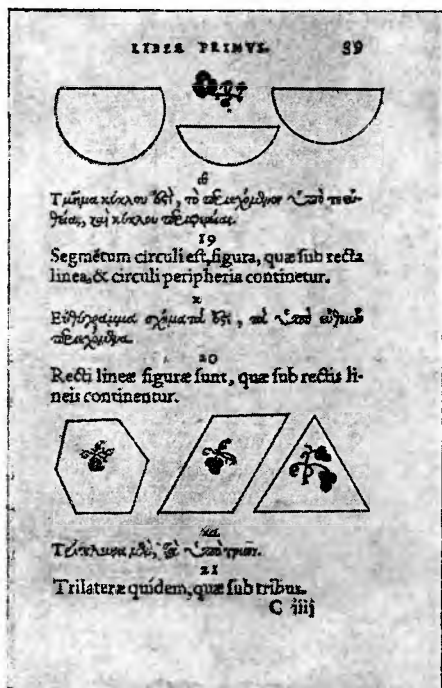 LIBER PRIMVS. 39
ιθ
Τμῆμα κύκλου ὅτι, τὸ περιεχόμθμον ὑπό τε εὐ-
θείας, καὶ κύκλου περιφερείας.
19
Segmētum circuli est, figura, quæ sub recta
linea, & circuli peripheria continetur.
κ
Εὐθύγραμμα σχήματά ὅτι, τὰ ὑπὸ εὐθειῶν
περιεχόμθμα.
20
Recti lineæ figuræ sunt, quæ sub rectis li-
neis continentur.
κα
Τρίπλευρα μθὺ, τὰ ὑπὸ τριῶν.
21
Trilateræ quidem, quæ sub tribus.
C iiij